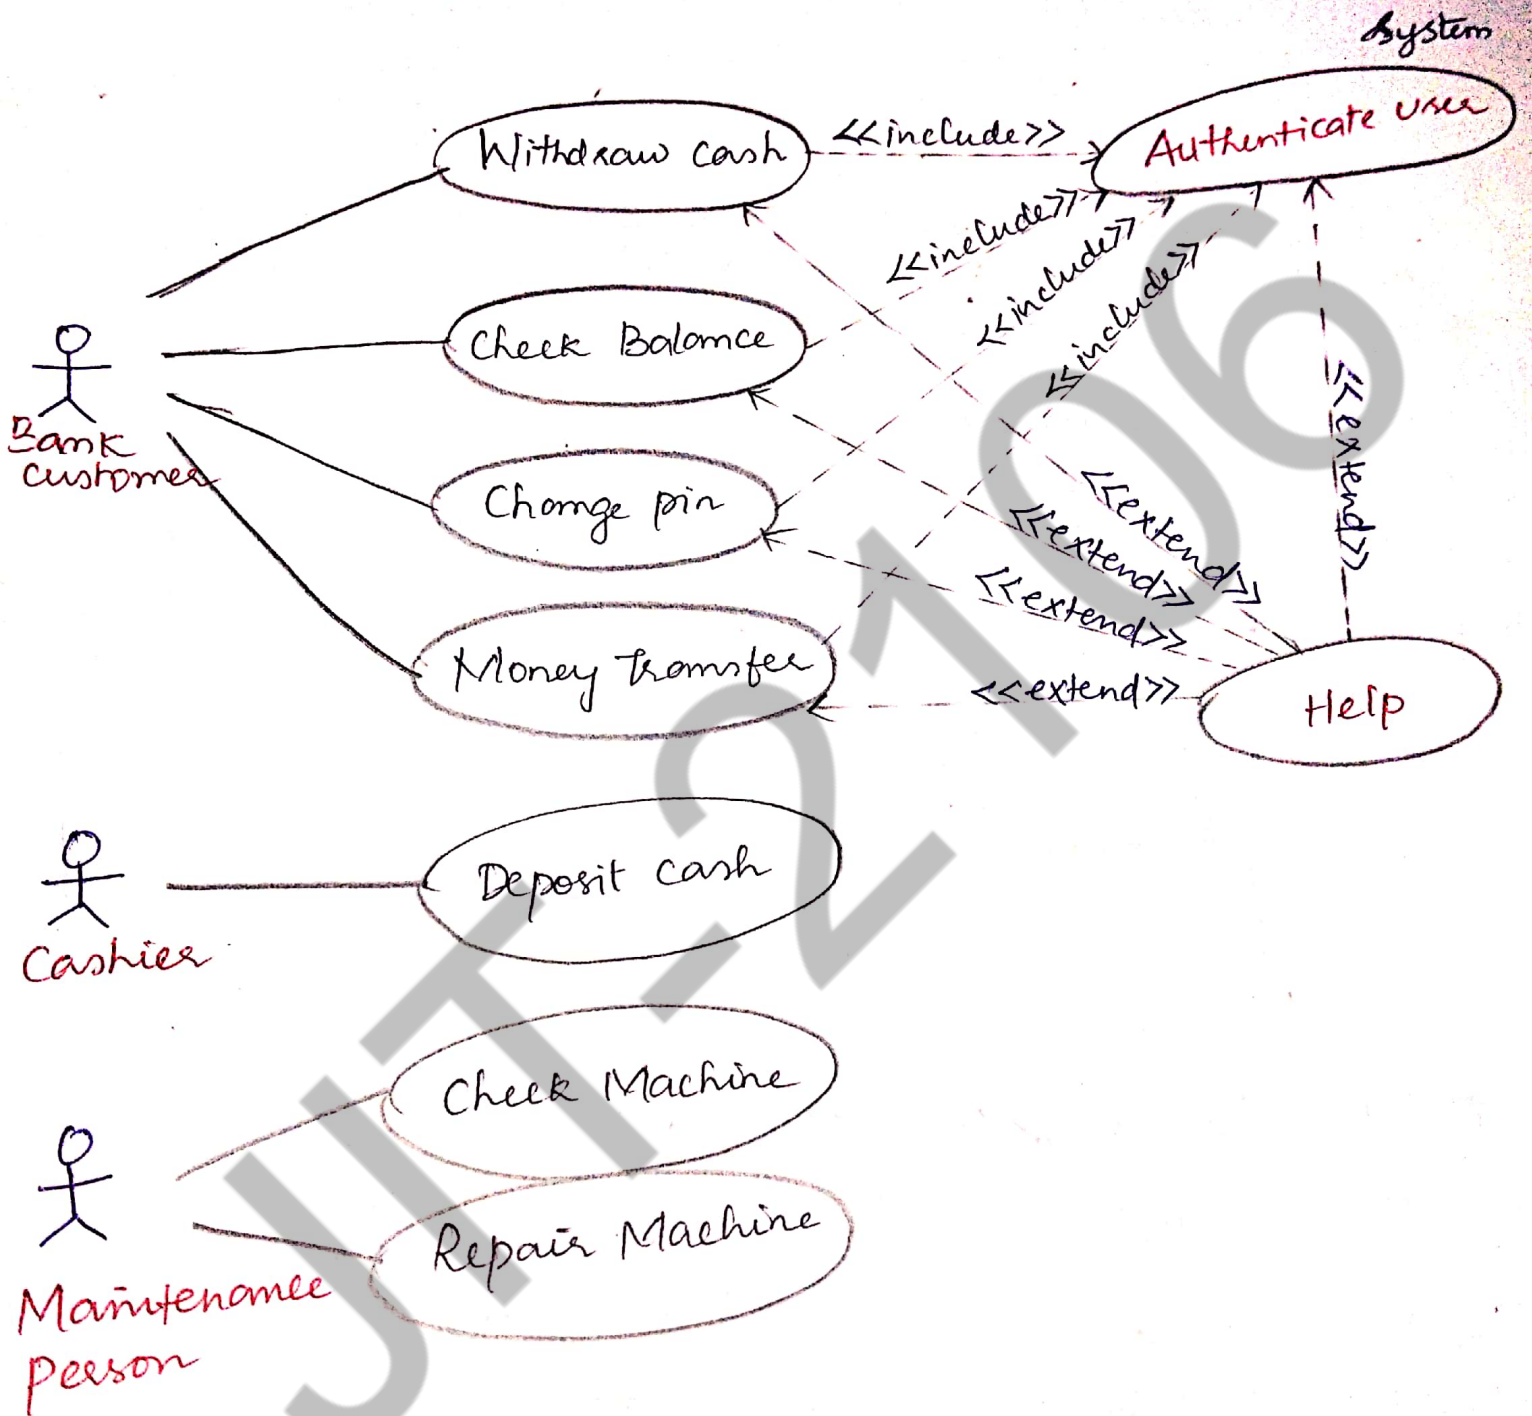 System
Withdraw cash
<<include>>
Authenticate user
<<include>>
<<include>>
<<include>>
Check Balance
Bank
customer
Change pin
<<extend>>
<<extend>>
<<extend>>
<<extend>>
Money Transfer
<<extend>>
Help
Deposit cash
Cashier
Check Machine
Repair Machine
Maintenance
person
JIT-2106